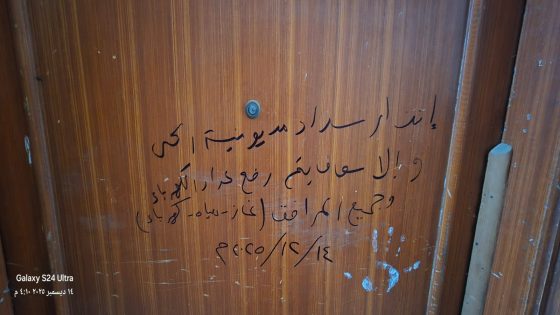 إنذار سداد مديونية الحى
و إلا سوف يتم رفع عداد الكهرباء
و جميع المرافق (غاز - مياه - كهرباء)
١٤/١٢/٢٠٢٥م
Galaxy S24 Ultra
١٤ ديسمبر ٢٠٢٥ ٤:١٠ م